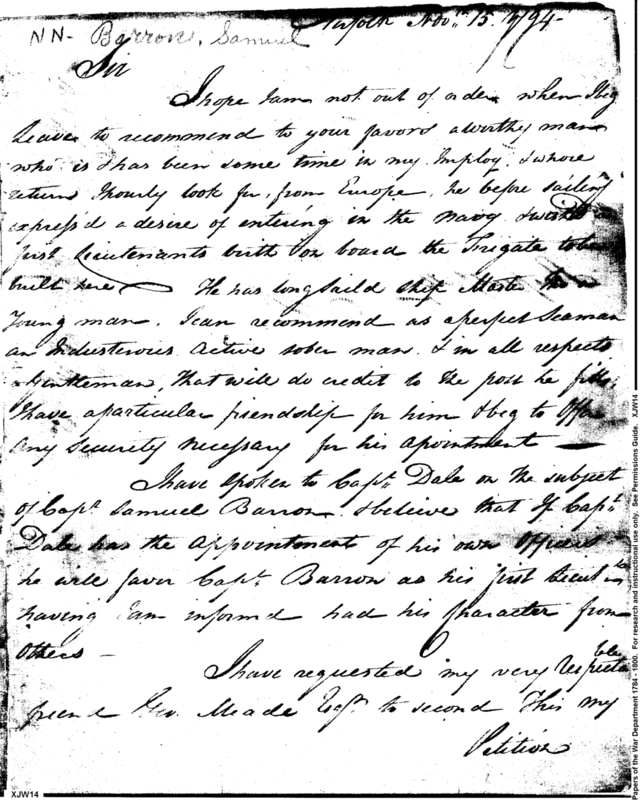 NN- Barron, Samuel
Norfolk Novr. 15. 1794-
Sir
I hope I am not out of order when I beg
Leave to recommend to your favors a worthy man
who is & has been some time in my Imploy, & whose
return I hourly look for, from Europe, he before sailing
expressd a desire of entering in the Navy
first Lieutenants birth on board the Frigate to be
built here He has long saild ship Master tho a
Young man. I can recommend as a perfect Seaman
an Industerious active sober man & in all respects
a Gentleman, that will do credit to the post he fills,
I have a particular friendship for him & beg to Offer
any Security necessary for his apointment
I have spoken to Capt. Dale on the subject
of Capt. Samuel Barron & believe that If Capt.
Dale has the Appointment of his own Officers
he will favor Capt. Barron as his first Lieut
having I am informd had his Character from
Others
I have requested my very respectable
friend Meade Esqr. to second this my
Petition
XJW14
Papers of the War Department 1784 - 1800. For research and instructional use only. See Permissions Guide. XJW14